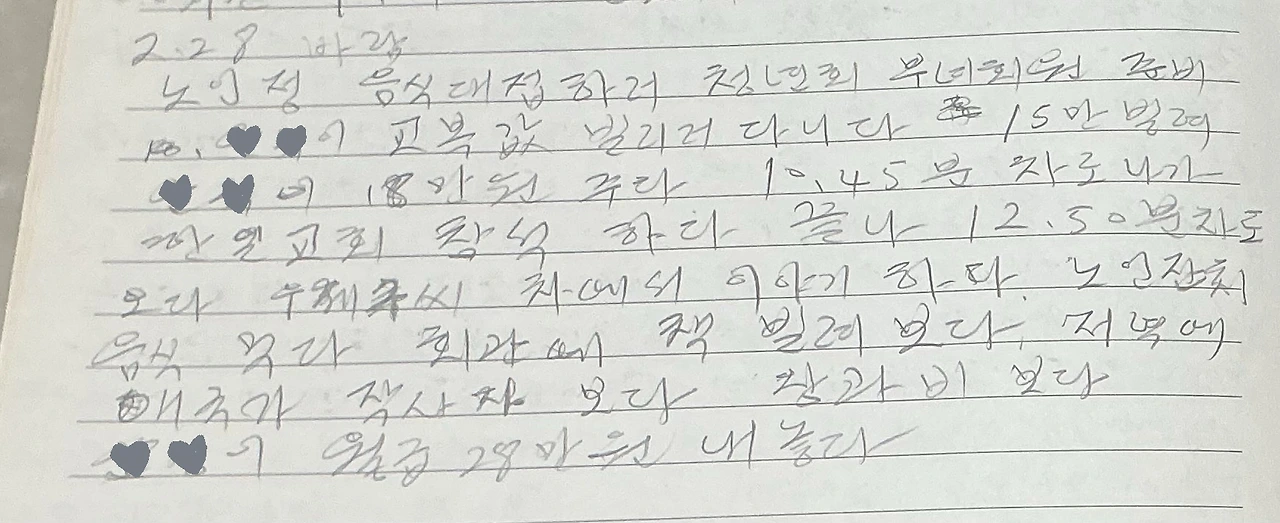 2.28 바람
노인정 음식대접하러 청년회 부녀회원 준비
이 교복값 빌리러 다니다 15만 빌려
이 18만원 주다 10.45분 차로 나가
한일교회 참석 하다 끝나 12.50분차로
오다 씨 차에서 이야기 하다. 노인잔치
음식 먹다 회관에 책 빌려 보다. 저녁에
애국가 작사자 보다 창과 비 보다
이 월급 28만원 내놓다